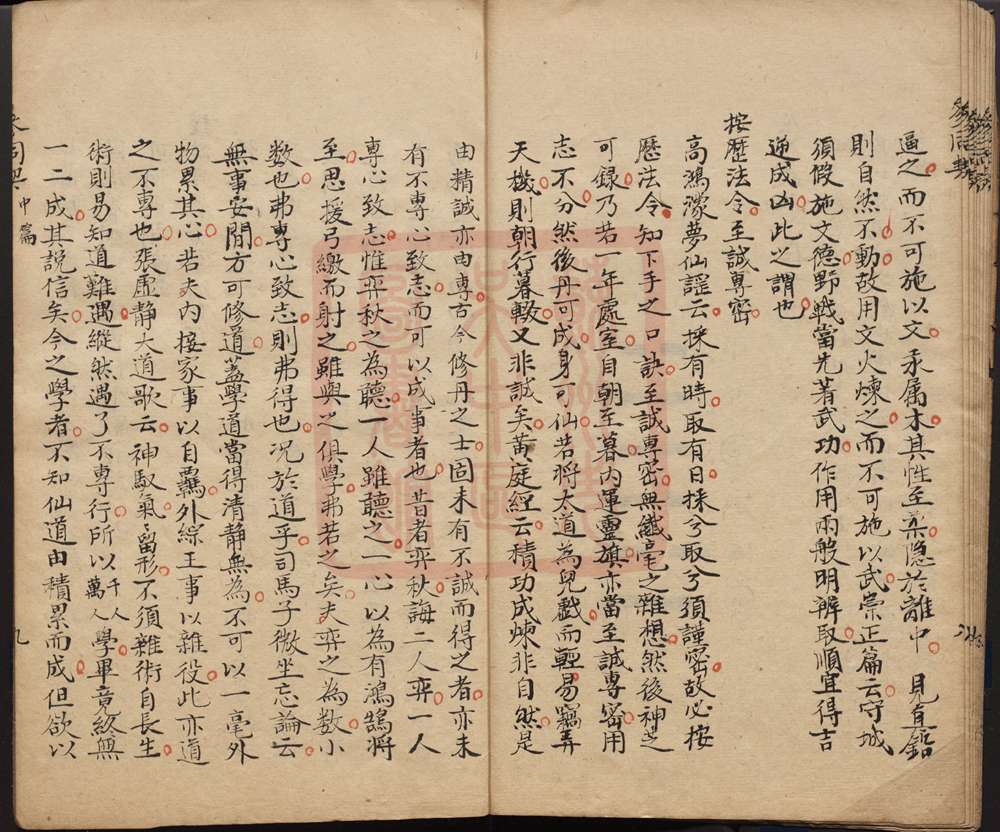 逼之而不可施以文汞属木其性至柔隐於離中見真鉛
則自然不動故用文火煉之而不可施以武崇正篇云守城
須假施文德野戰當先著武功作用兩般明辨取順宜得吉
逆成凶此之謂也
按歷法令至誠專密
高鴻濛夢仙謡云採有時取有日採兮取兮須謹密故必按
歷法令知下手之口訣至誠專密無纖毫之雜想然後神芝
可録乃若一年處室自朝至暮内運靈旗亦當至誠專密用
志不分然後丹可成身可仙若將大道為兒戲而輕易竊弄
天機則朝行暮輟又非誠矣黄庭經云積功成煉非自然是
由精誠亦由專古今修丹之士固未有不誠而得之者亦未
有不專心致志而可以成事者也昔者弈秋誨二人弈一人
專心致志惟弈秋之為聽一人雖聽之一心以為有鴻鵠將
至思援弓繳而射之雖與之俱學弗若之矣夫弈之為數小
數也弗專心致志則弗得也况於道乎司馬子微坐忘論云
無事安閒方可修道蓋學道當得清靜無為不可以一毫外
物累其心若夫内接家事以自羈外綜王事以雜役此亦道
之不專也張虛靜大道歌云神馭氣氣留形不須雜術自長生
術則易知道難遇縱然遇了不專行所以千人萬人學畢竟終無
一二成其説信矣今之學者不知仙道由積累而成但欲以
中篇
九